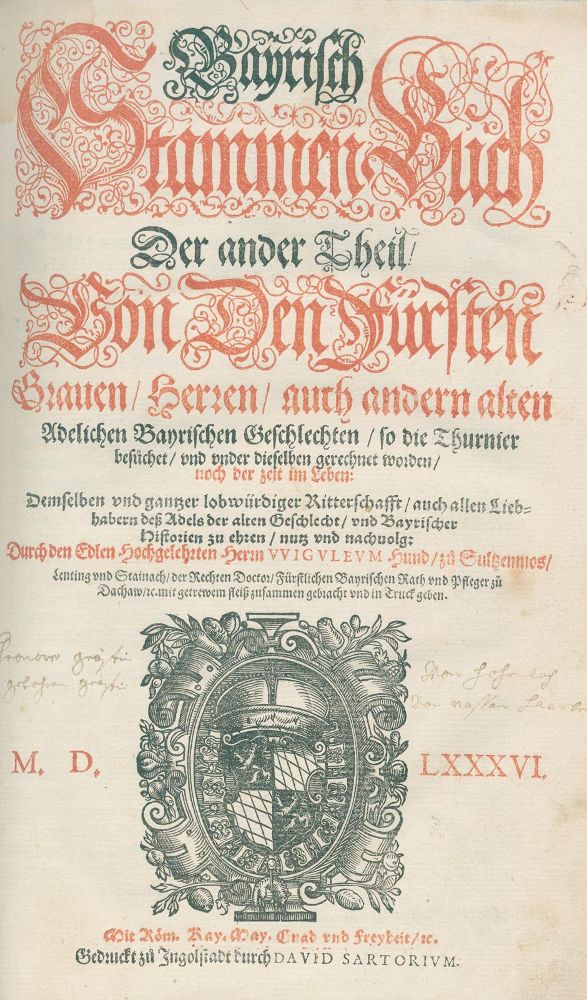 Bayrisch
Stammen Buch
Der ander Theil/
Von Den Fürsten
Grauen/ Herren/ auch andern alten
Adelichen Bayrischen Geschlechten/ so die Thurnier
besůchet/ vnd vnder dieselben gerechnet worden/
noch der zeit im Leben:
Demselben vnd gantzer lobwürdiger Ritterschafft/ auch allen Lieb-
habern deß Adels der alten Geschlecht/ vnd Bayrischer
Historien zu ehren/ nutz vnd nachuolg:
Durch den Edlen Hochgelehrten Herrn VVIGVLEVM Hund/ zů Sultzenmos/
Lenting vnd Stainach/ der Rechten Doctor/ Fürstlichen Bayrischen Rath vnd Pfleger zů
Dachaw/ꝛc. mit getrewem fleiß zusammen gebracht vnd in Truck geben.
geborhen gräfin
Von hohenloh
von nassau
M. D. LXXXVI.
Mit Röm. Kay. May. Gnad vnd Freyheit/ꝛc.
Gedruckt zů Ingolstadt durch DAVID SARTORIVM.